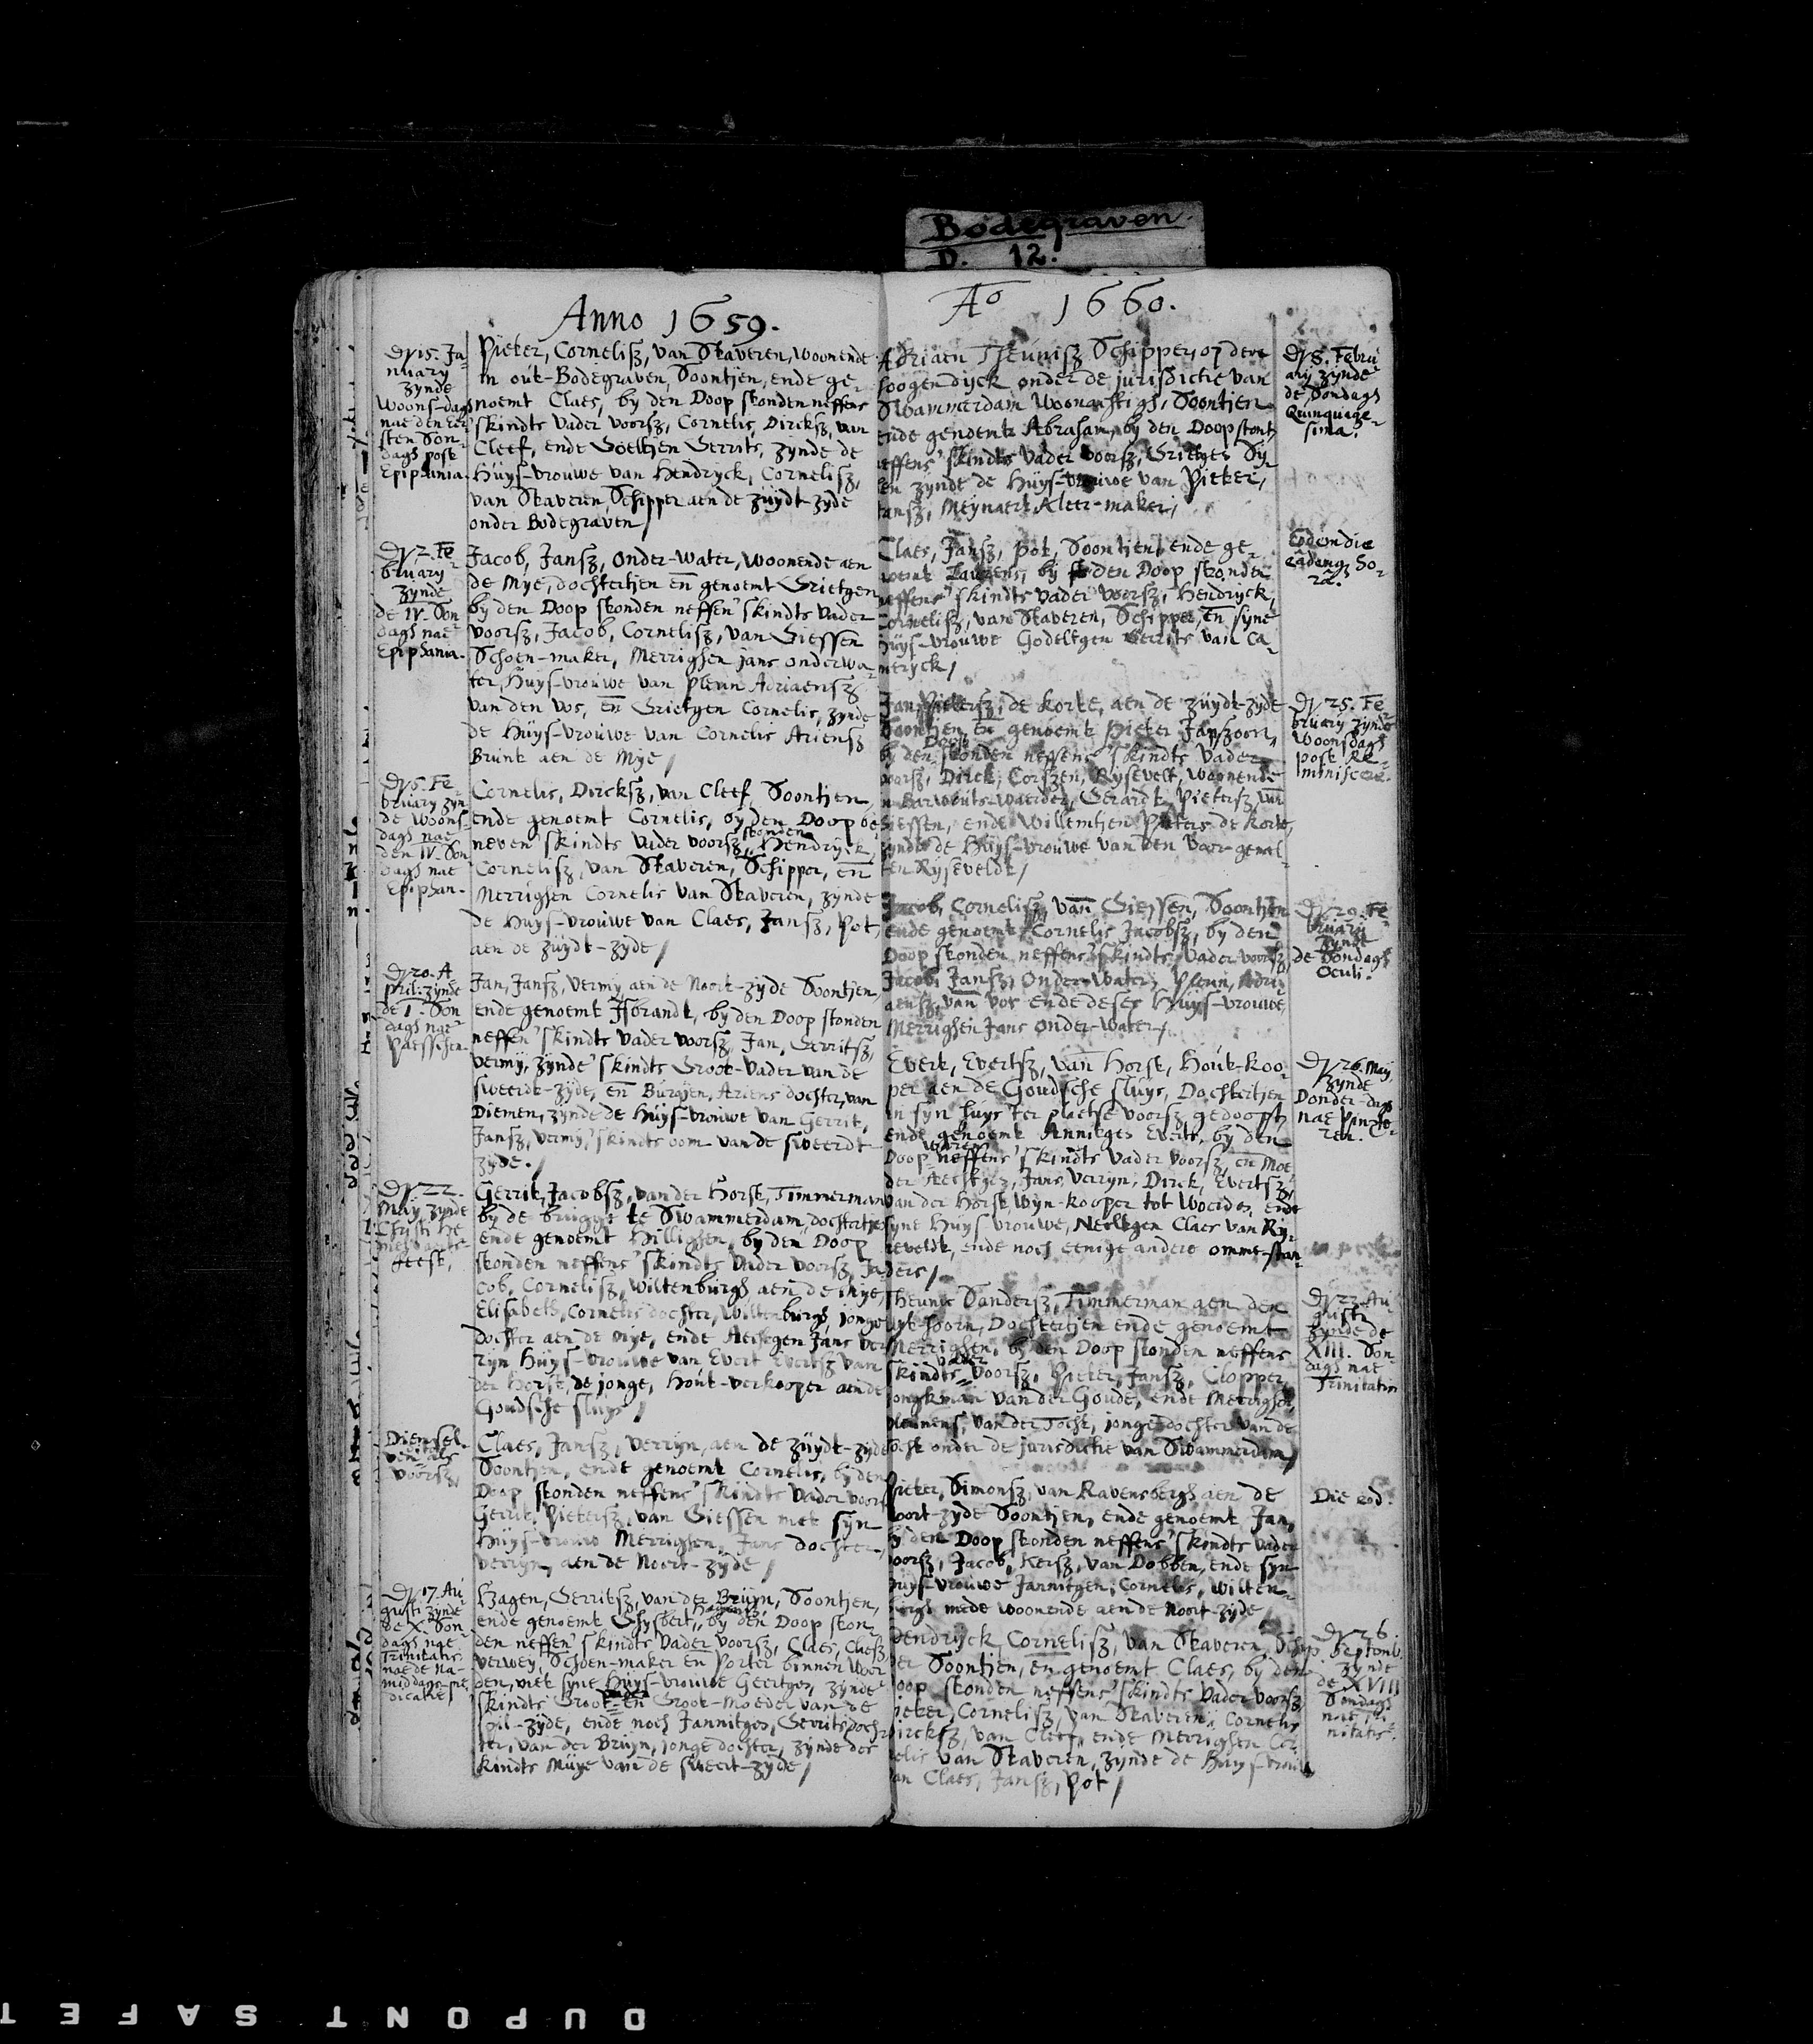 Bodegraven.
D. 12.
Anno 1659.
Dẏ 15. Ja
nuary
zynde
Woons-dagh
nae den Eer
sten Son
dagh post
Epiphania.
Pieter, Cornelisz, van Staveren, woonende
in out-Bodegraven, Soontjen, ende ge
noemt Claes, by den Doop stonden neffens
'skindts Vader voorsz, Cornelis, Dircksz, van
Cleef, ende Goeltjen Gerrits, zynde de
Huys-vrouwe van Hendryck, Cornelisz,
van Staveren, Schipper aen de zuydt-zyde
onder Bodegraven/
Dẏ 2. Fe
bruary
zynde
de IV. Son
dagh nae
Epiphania.
Jacob, Jansz, Onder-Water, woonende aen
de Mye, dochtertjen en genoemt Grietgen
by den Doop stonden neffen 'skindts Vader
voorsz, Jacob, Cornelisz, van Giessen
Schoen-maker, Merrighen jans onderwa
ter, Huys-vrouwe van Pleun Adriaensz
van den vos, en Grietgen Cornelis, zynde
de Huys-vrouwe van Cornelis Ariensz
Brunt aen de Mye/
Dẏ 5. Fe
bruary zyn
de Woons
dagh nae
den IV. Son
dagh nae
Epiphan.
Cornelis, Dircksz, van Cleef, Soontjen,
ende genoemt Cornelis, by den Doop
neven 'skindts Vader voorsz, stonden Hendryck,
Cornelisz, van Staveren, Schipper, en
Merrighen Cornelis van Staveren, zynde
de Huys-vrouwe van Claes, Jansz, Pot,
aen de zuydt-zyde/
Dẏ 20. A
pril: zynde
de I. Son
dagh nae
Paesschen.
Jan, Jansz, Vermy aen de Noort-zyde Soontjen,
ende genoemt Jsbrandt, by den Doop stonden
neffen 'skindts Vader voorsz, Jan, Gerritsz,
Vermy, zynde 'skindts Groot-Vader van de
sweerdt-zyde, en Burgjen, Ariens dochter, van
Diemen, zynde de Huys-vrouwe van Gerrit,
Jansz, vermy, 'skindts oom van de sweerdt
zyde./
Dẏ 22.
May zynde
Christi He
mel-vaerts
feest,
Gerrit, Jacobsz, van der Horst, Timmerman
by de brugge te Swammerdam, dochtertje
ende genoemt Hillighen, by den Doop
stonden neffens 'skindts Vader voorsz, Ja
cob, Cornelisz, Wiltenburgh aen de mye,
Elisabeth, Cornelis dochter, Wiltenburgh, jonge
dochter aen de mye, ende Aechtgen Jans Ver
ryn Huys-vrouwe van Evert Evertsz van
der Horst, de jonge, Hout-verkooper aen de
Goudsche sluys/
Dienselven
voorsz,
Claes, Jansz, Verryn, aen de zuydt-zyde
Soontjen, ende genoemt Cornelis, by den
Doop stonden neffens 'skindts Vader voorsz
Gerrit, Pietersz, van Giessen met syn
Huys-vrouw Merrighen, Jans dochter,
Verryn, aen de Noort-zyde/
Dẏ 17. Au
gusti zynde
de X. Son
dagh nae
Trinitatis
nae de na
middaegs-pre
dicatie
Hagen, Gerritsz, van der Bruyn, Soontjen,
ende genoemt Ghysbert, Hagensz, by den Doop ston
den neffen 'skindts Vader voorsz, Claes, Claesz
Verwey, Schoen-maker en Porter binnen Woer
den, met syne Huys-vrouwe Geertgen, zynde
'skindts Groot-Vader en Groot-Moeder van de
spil-zyde, ende noch Jannitgen, Gerrits doch
ter, van der Bruyn, jonge dochter, zynde des
kindts Muye van de sweert-zyde/
Aº 1660.
Adriaen Theunisz Schipper, op den
hoogendyck onder de jurisdictie van
Swammerdam woonachtigh, Soontjen
ende genoemt Abraham, by den Doop stont
neffens 'skindts Vader voorsz, Grietges
zynde de Huys-vrouwe van Pieter,
Jansz, Meynaert Kleer-maker/
Dẏ 8. Febru
ary zynde
de Sondagh
Quinquage
sima.
Claes, Jansz, Pot, Soontjen, ende ge
noemt by den Doop stonden
neffens 'skindts Vader voorsz, Hendryck,
Cornelisz, van Staveren, Schipper, en syne
Huys-vrouwe Godeltgen Gerrits van Ca
meryck/
Eodem die
eâdemq; ho
râ.
Jan, Pietersz, de korte, aen de zuydt-zyde
Soontjen en genoemt Pieter Janszoon,
by den Doop stonden neffens 'skindts Vader
voorsz, Dirck, Corszen, Rysevelt, woonende
in Barwoutswaerder, Gerardt, Pietersz, van
Giessen, ende Willemtjen Pieters de korte,
zynde de Huys-vrouwe van den voor-genoem
ten Ryseveldt/
Dẏ 25. Fe
bruary zynde
Woonsdagh
post Re
miniscere.
Jacob, Cornelisz, van Giessen, Soontjen
ende genoemt Cornelis Jacobsz, by den
Doop stonden neffens 'skindts Vader voorsz,
Jacob, Jansz, Onder-Water, Pleun, Adri
aensz, van vos ende deses Huys-vrouwe
Merrighen Jans Onder-Water/
Dẏ 29. Fe
bruary
zynde
de Sondagh
Oculi.
Evert, Evertsz, van Horst, Hout-koo
per aen de Goudsche sluys, Dochtertjen
in syn huys ter plaetse voorsz gedoopt,
ende genoemt Annitges Everts, by den
Doop waren neffens 'skindts Vader voorsz, en Moe
der Aechtgen, Jans, Verryn, Dirck, Evertsz,
van der Horst, Wyn-kooper tot Woerden, ende
syne Huys vrouwe, Neeltgen Claes van Ry
seveldt, ende noch eenige andere omme-stan
ders/
Dẏ 26. May,
zynde
Donder-dagh
nae Pinxte
ren.
Theunis Sandersz, Timmerman aen den
Uythoorn, Dochtertjen ende genoemt
Merrighen, by den Doop stonden neffens
'skindts vader voorsz, Pieter, Jansz, Clopper,
Jongkman van der Goude, ende Merrighen
Pleunens, van der Tocht, jonge dochter van de
tocht onder de jurisdictie van Swammerdam/
Dẏ 22. Au
gusti
zynde de
XIII. Son
dagh nae
Trinitatis
Pieter, Simonsz, van Ravensbergh aen de
Noort-zyde Soontjen, ende genoemt Jan,
by den Doop stonden neffens 'skindts Vader
voorsz, Jacob, Kersz, van Dobben, ende syn
Huys-vrouwe Jannitgen, Cornelis, Wilten
burgh mede woonende aen de Noort-zyde/
Die eod.
Hendryck, Cornelisz, van Staveren, Schip
per Soontjen, en genoemt Claes, by den
Doop stonden neffens 'skindts Vader voorsz,
Pieter, Cornelisz, van Staveren, Cornelis
Dircksz, van Cleef, ende Merrighen Cor
nelis van Staveren, zynde de Huys-vrouw
van Claes, Jansz, Pot/
Dẏ 26.
Septemb.
zynde
de XVIII
Sondagh
nae Tri
nitatis.
DUPONT SAFET